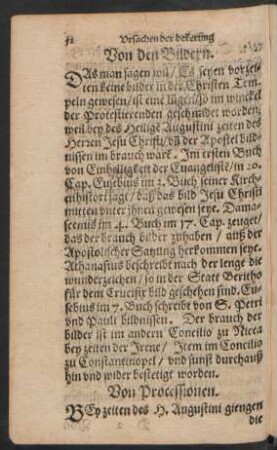 52 Vrsachen der bekerung
Von den Bildern.
DAs man sagen wil / Es seyen vorzei-
ten keine bilder in der Christen Tem-
peln gewesen / ist eine lügen / so im winckel
der Protestierenden geschmidet worden /
weil bey des Heilige Augustini zeiten des
Herzen Jesu Christi / vñ der Apostel bild-
nissen im brauch warē. Im ersten Buch
von Einhälligkeit der Euangelistē / in 10.
Cap. Eusebius im 2. Buch seiner Kirch-
enhistori sagt / daß das bild Jesu Christi
mitten vnter jhnen gewesen seye. Dama-
scenus im 4. Buch im 17. Cap. zeuget /
das der brauch bilder zuhaben / auß der
Apostolischer Satzung herkommen seye.
Athanasius beschreibt nach der lenge die
wunderzeichen / so in der Statt Beritho
für dem Crucifix bild geschehen sind. Eu-
sebius im 7. Buch schreibt von S. Petri
vnd Pauli bildnissen. Der brauch der
bilder ist im andern Concilio zu Nicea
bey zeiten der Irene / Item im Concilio
zu Constantinopel / vnd sunst durchauß
hin vnd wider bestetiget worden.
Von Processionen.
BEy zeiten des H. Augustini giengen
die